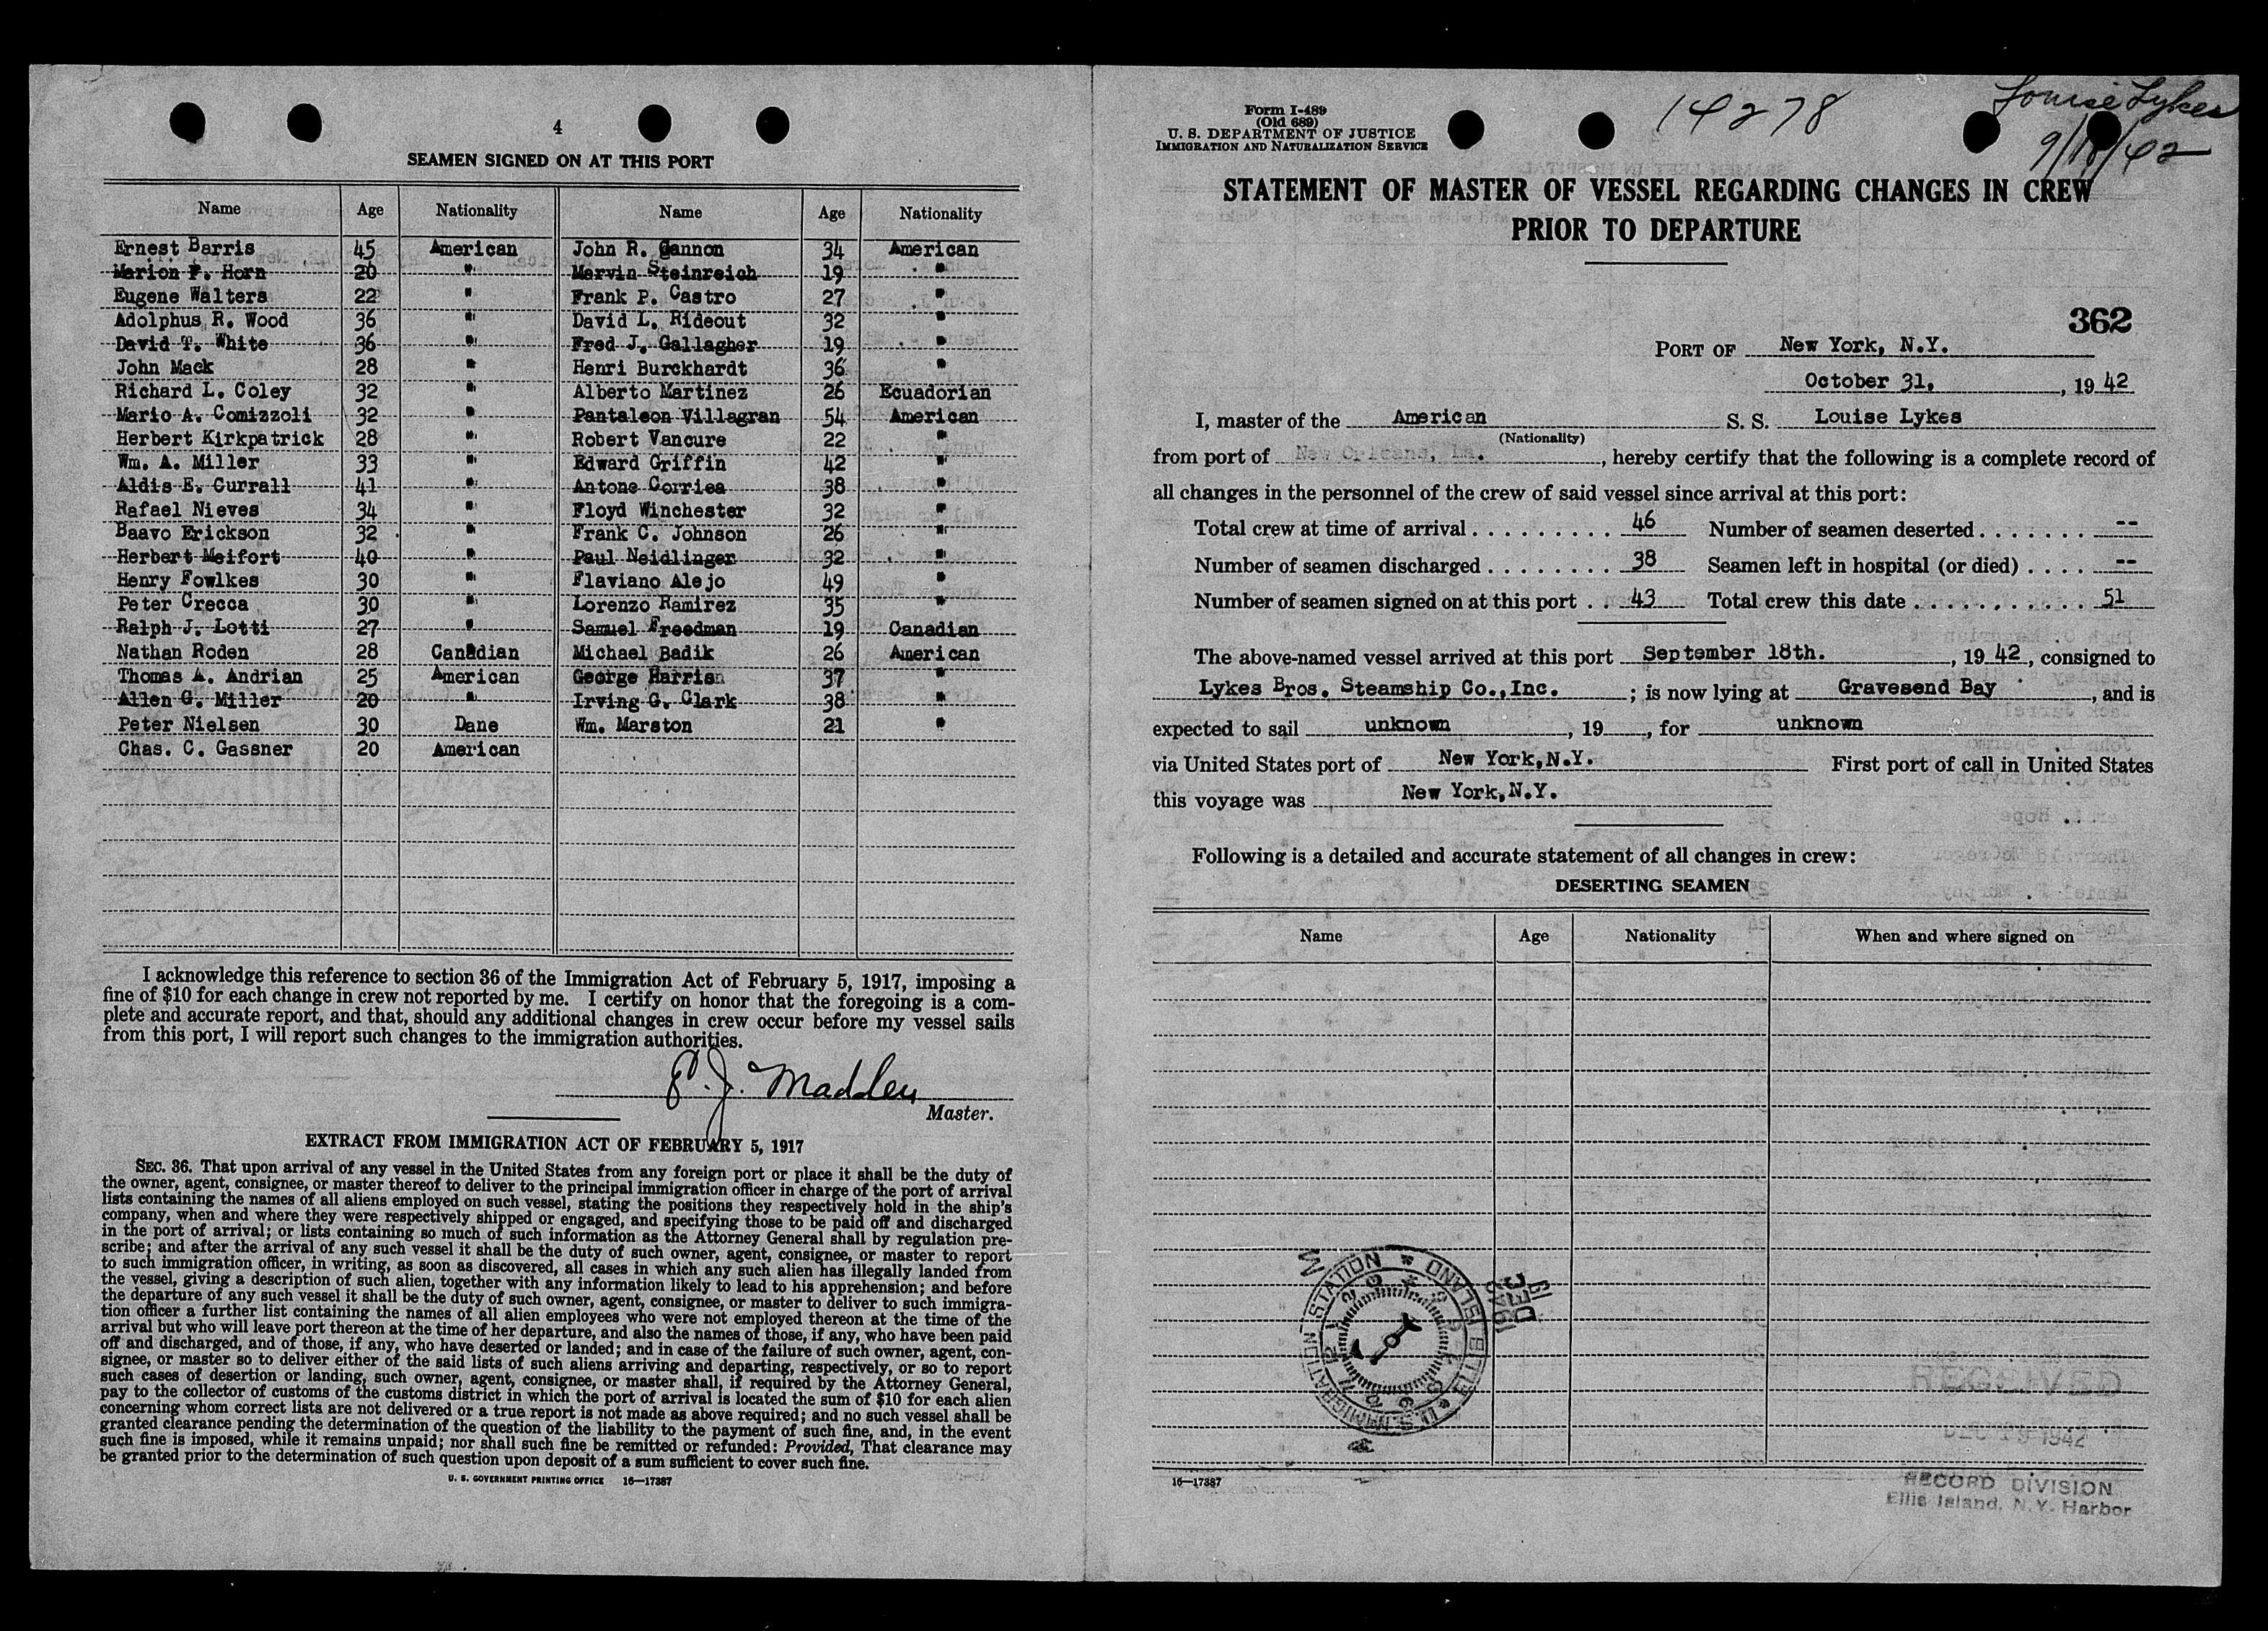 4
SEAMEN SIGNED ON AT THIS PORT
Name Age Nationality Name Age Nationality
Ernest Barris 45 American John R. Gannon 34 American
Marion F. Horn 20 " Marvin Steinreich 19 "
Eugene Walters 22 " Frank P. Castro 27 "
Adolphus R. Wood 36 " David L. Rideout 32 "
David T. White 36 " Fred J. Gallagher 19 "
John Mack 28 " Henri Burckhardt 36 "
Richard L. Coley 32 " Alberto Martinez 26 Ecuadorian
Mario A. Comizzoli 32 " Pantaleon Villagran 54 American
Herbert Kirkpatrick 28 " Robert Vancure 22 "
Wm. A. Miller 33 " Edward Griffin 42 "
Aldis E. Currall 41 " Antone Corriea 38 "
Rafael Nieves 34 " Floyd Winchester 32 "
Baavo Erickson 32 " Frank C. Johnson 26 "
Herbert Meifort 40 " Paul Neidlinger 32 "
Henry Fowlkes 30 " Flaviano Alejo 49 "
Peter Crecca 30 " Lorenzo Ramirez 35 "
Ralph J. Lotti 27 " Samuel Freedman 19 Canadian
Nathan Roden 28 Canadian Michael Badik 26 American
Thomas A. Andrian 25 American George Harris 37 "
Allen G. Miller 20 " Irving G. Clark 38 "
Peter Nielsen 30 Dane Wm. Marston 21 "
Chas. C. Gassner 20 American
I acknowledge this reference to section 36 of the Immigration Act of February 5, 1917, imposing a
fine of $10 for each change in crew not reported by me. I certify on honor that the foregoing is a com-
plete and accurate report, and that, should any additional changes in crew occur before my vessel sails
from this port, I will report such changes to the immigration authorities.
P. J. Madden
Master.
EXTRACT FROM IMMIGRATION ACT OF FEBRUARY 5, 1917
SEC. 36. That upon arrival of any vessel in the United States from any foreign port or place it shall be the duty of
the owner, agent, consignee, or master thereof to deliver to the principal immigration officer in charge of the port of arrival
lists containing the names of all aliens employed on such vessel, stating the positions they respectively hold in the ship's
company, when and where they were respectively shipped or engaged, and specifying those to be paid off and discharged
in the port of arrival; or lists containing so much of such information as the Attorney General shall by regulation pre-
scribe; and after the arrival of any such vessel it shall be the duty of such owner, agent, consignee, or master to report
to such immigration officer, in writing, as soon as discovered, all cases in which any such alien has illegally landed from
the vessel, giving a description of such alien, together with any information likely to lead to his apprehension; and before
the departure of any such vessel it shall be the duty of such owner, agent, consignee, or master to deliver to such immigra-
tion officer a further list containing the names of all alien employees who were not employed thereon at the time of the
arrival but who will leave port thereon at the time of her departure, and also the names of those, if any, who have been paid
off and discharged, and of those, if any, who have deserted or landed; and in case of the failure of such owner, agent, con-
signee, or master so to deliver either of the said lists of such aliens arriving and departing, respectively, or so to report
such cases of desertion or landing, such owner, agent, consignee, or master shall, if required by the Attorney General,
pay to the collector of customs of the customs district in which the port of arrival is located the sum of $10 for each alien
concerning whom correct lists are not delivered or a true report is not made as above required; and no such vessel shall be
granted clearance pending the determination of the question of the liability to the payment of such fine, and, in the event
such fine is imposed, while it remains unpaid; nor shall such fine be remitted or refunded: Provided, That clearance may
be granted prior to the determination of such question upon deposit of a sum sufficient to cover such fine.
U. S. GOVERNMENT PRINTING OFFICE 16—17387
Form I-489
(Old 689)
U. S. DEPARTMENT OF JUSTICE
IMMIGRATION AND NATURALIZATION SERVICE
14278
Louise Lykes
9/18/42
STATEMENT OF MASTER OF VESSEL REGARDING CHANGES IN CREW
PRIOR TO DEPARTURE
362
PORT OF New York, N.Y.
October 31, , 19 42
I, master of the American S. S. Louise Lykes
(Nationality)
from port of New Orleans, La. , hereby certify that the following is a complete record of
all changes in the personnel of the crew of said vessel since arrival at this port:
Total crew at time of arrival . . . . . . . . . 46 Number of seamen deserted . . . . . . . --
Number of seamen discharged . . . . . . . . 38 Seamen left in hospital (or died) . . . . --
Number of seamen signed on at this port . . 43 Total crew this date . . . . . . . . . . . 51
The above-named vessel arrived at this port September 18th. , 19 42 , consigned to
Lykes Bros. Steamship Co.,Inc. ; is now lying at Gravesend Bay , and is
expected to sail unknown , 19 , for unknown
via United States port of New York,N.Y. First port of call in United States
this voyage was New York,N.Y.
Following is a detailed and accurate statement of all changes in crew:
DESERTING SEAMEN
Name Age Nationality When and where signed on
U.S. IMMIGRATION STATION * ELLIS ISLAND *
1942
DEC
19
RECEIVED
DEC 19 1942
RECORD DIVISION
Ellis Island, N. Y. Harbor
16—17387